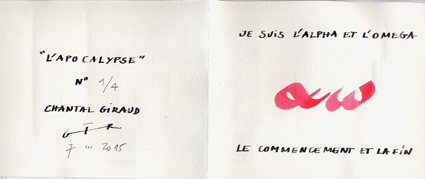 "L'APOCALYPSE"
N° 1/4
CHANTAL GIRAUD
7 III 2015
JE SUIS L'ALPHA ET L'OMEGA
αω
LE COMMENCEMENT ET LA FIN